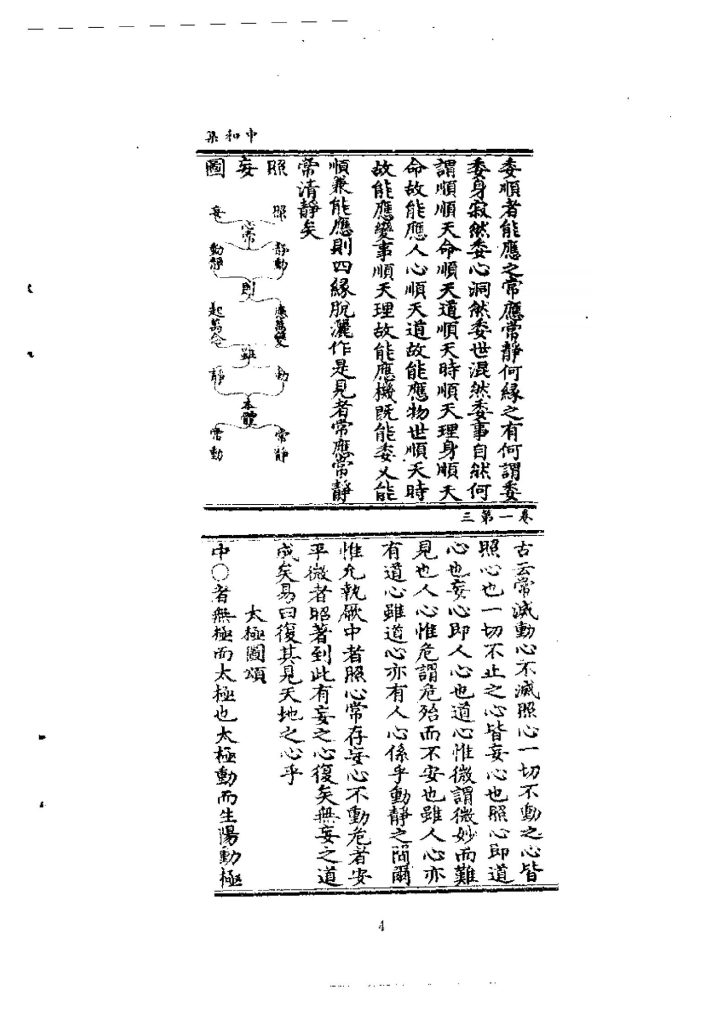 中和集
委順者能應之常應常靜何緣之有何謂委
委身寂然委心洞然委世混然委事自然何
謂順順天命順天道順天時順天理身順天
命故能應人心順天道故能應物世順天時
故能應變事順天理故能應機既能委又能
順兼能應則四緣脫灑作是見者常應常靜
常清靜矣
照妄圖
照 妄
常
靜動 動靜
則
應萬變 起萬念
雖
動 靜
本體
常靜 常動
卷一第三
古云常滅動心不滅照心一切不動之心皆
照心也一切不止之心皆妄心也照心即道
心也妄心即人心也道心惟微謂微妙而難
見也人心惟危謂危殆而不安也雖人心亦
有道心雖道心亦有人心係乎動靜之間爾
惟允執厥中者照心常存妄心不動危者安
平微者昭著到此有妄之心復矣無妄之道
成矣易曰復其見天地之心乎
太極圖頌
中〇者無極而太極也太極動而生陽動極
4